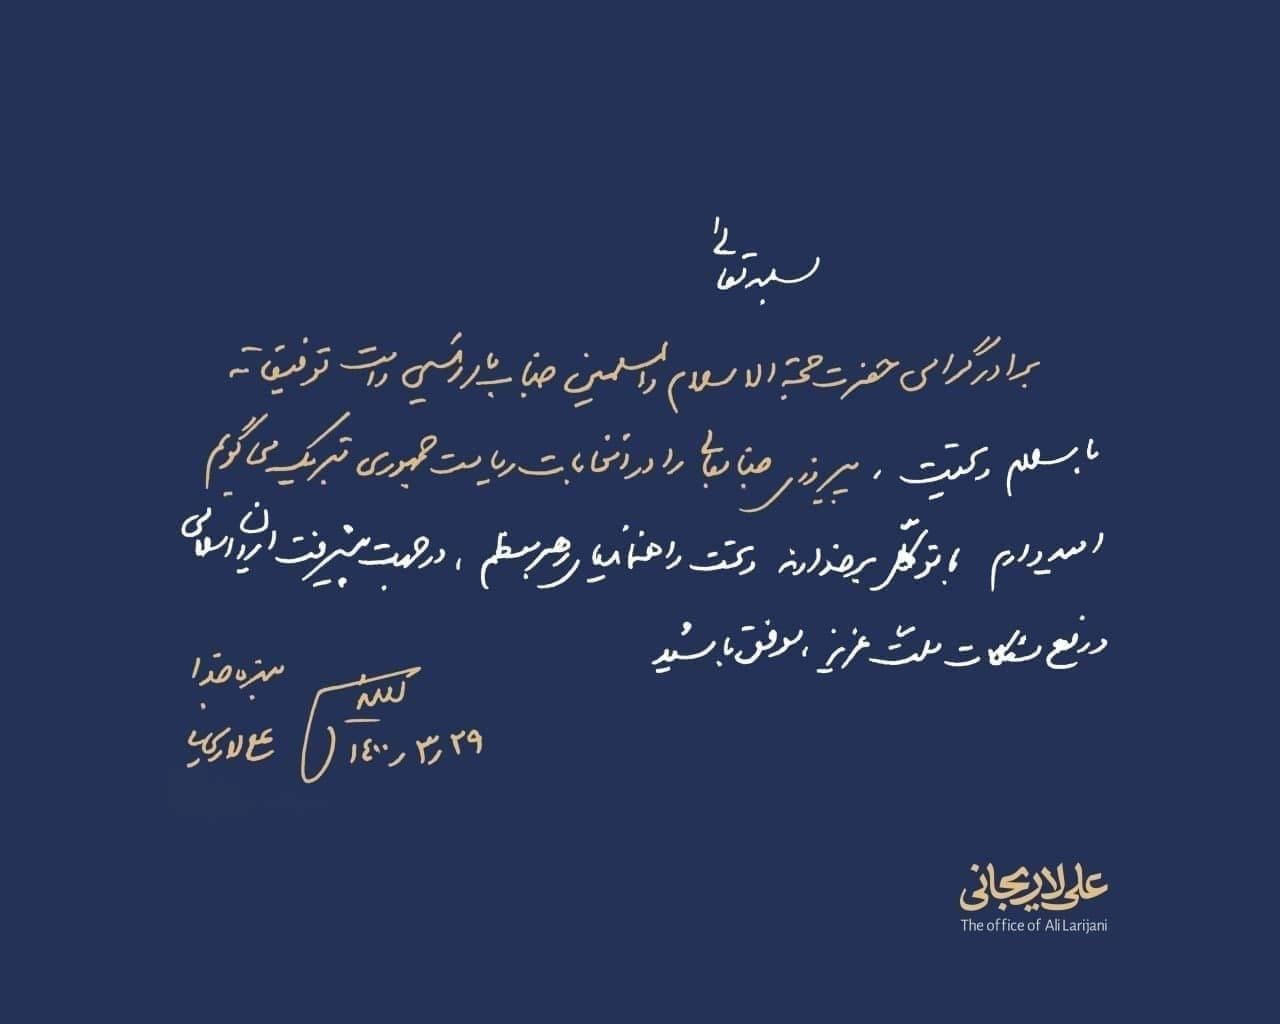 بسمه تعالی
برادر گرامی حضرت حجة الاسلام والمسلمین جناب آقای رئیسی دامت توفیقاته
با سلام و تحیت ، پیروزی جنابعالی را در انتخابات ریاست جمهوری تبریک می گویم
امیدوارم با توکل بر خداوند و تحت راهنمائیهای رهبر معظم ، در جهت پیشرفت ایران اسلامی
و رفع مشکلات ملت عزیز ، موفق باشید
بنده خدا
علی لاریجانی
۱۴۰۰ر۳ر۲۹
علی لاریجانی
The office of Ali Larijani